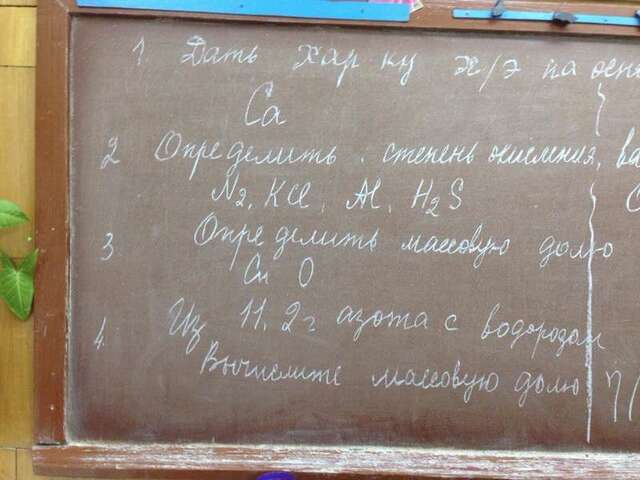 1 Дать хар ку х/э на осн
Ca
2 Определить степень окисления, ва
N2, KCl, Al, H2S
3 Определить массовую долю
Cu O
4. Из 11,2г азота с водородом
Вычислите массовую долю η/